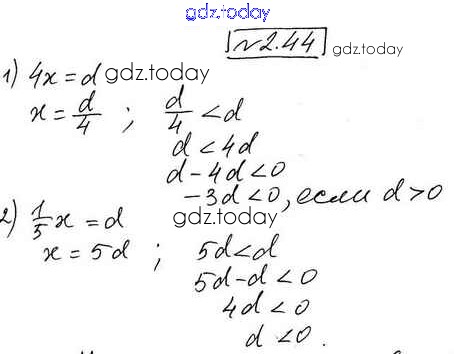 gdz.today
№2.44 gdz.today
1) 4x = d gdz.today
x = d/4 ; d/4 < d
d < 4d
d - 4d < 0
-3d < 0, если d > 0
2) 1/5 x = d gdz.today
x = 5d ; 5d < d
5d - d < 0
4d < 0
d < 0.